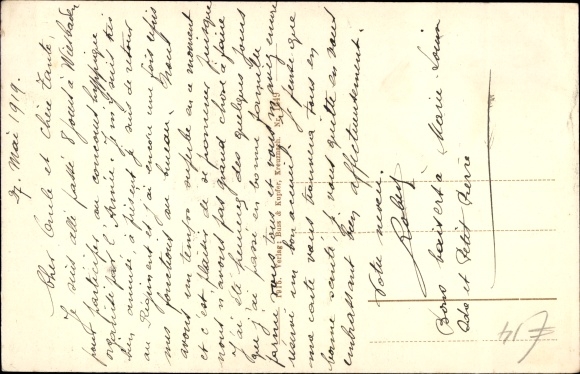 7. Mai 1919.
Cher Oncle et chère Tante,
Je suis allé passé 8 jours à Wiesbaden
pour participer au concours hippique
organisé par l'Armée. Je m'y suis très
bien amusé, à présent je suis de retour
au Régiment et j'ai encore une fois repris
mes fonctions au bureau. Nous
avons un temps superbe en ce moment
et c'est plaisir de se promener puisque
nous n'avons pas grand chose à faire
J'ai été heureux des quelques jours
que j'ai passé en bonne famille
tous et vous
un bon accueil. Je pense que
ma carte vous trouvera tous en
bonne santé, je vous quitte en vous
embrassant bien affectueusement.
Votre neveu.
Robert
Bons baisers à Marie Louise
et Petit Pierre
Verlag: Bins & Kupfer, Kreuznach. No.
F14